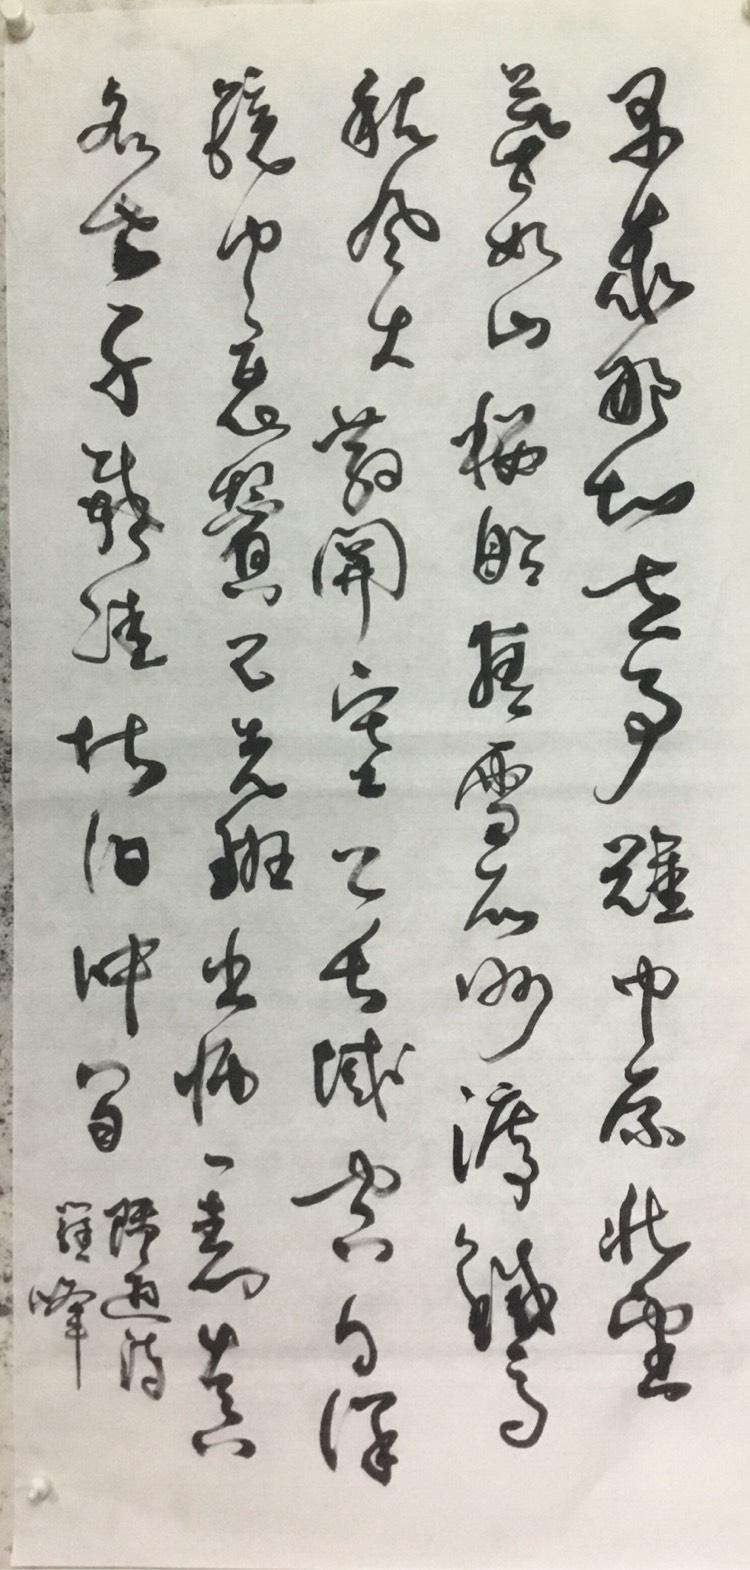 早歲那知世事艱中原北望
氣如山樓船夜雪瓜洲渡鐵馬
秋風大散關塞上長城空自許
鏡中衰鬢已先斑出師一表真
名世千載誰堪伯仲間
陸遊詩
峰